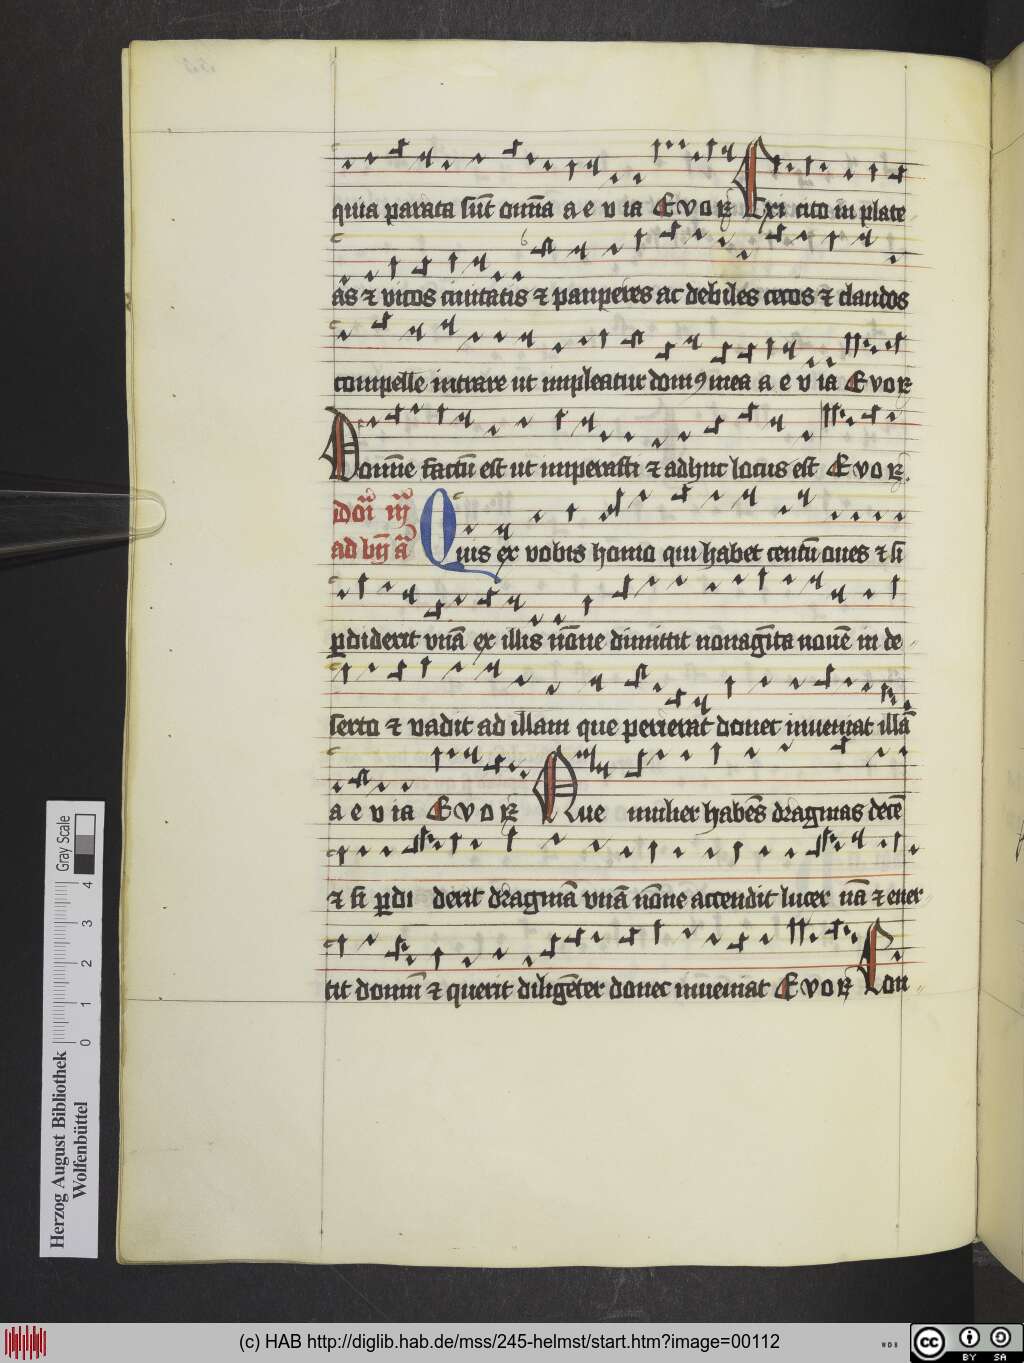 quia parata sūt om̄ia a e v ia E v o ꝝ Exi cito in plate
as ⁊ vicos ciuitatis ⁊ pauperes ac debiles cecos ⁊ claudos
compelle intrare ut impleatur domꝰ mea a e v ia E v o ꝝ
Domīe factū est ut imperasti ⁊ adhuc locus est E v o ꝝ.
Quis ex vobis homo qui habet centū oues ⁊ si
ꝑdiderit vnā ex illis nōne dimittit nonagīta nouē in de
serto ⁊ vadit ad illam que perierat donec inueniat illā
a e v ia E v o ꝝ Que mulier habēs dragmas decē
⁊ si ꝑdi derit dragmā vnā nōne accendit lucer nā ⁊ euer
tit domū ⁊ querit diligēter donec inueniat E v o ꝝ
Herzog August Bibliothek
Wolfenbüttel
0 1 2 3 4
Gray Scale
(c) HAB http://diglib.hab.de/mss/245-helmst/start.htm?image=00112
WDB
cc
BY SA